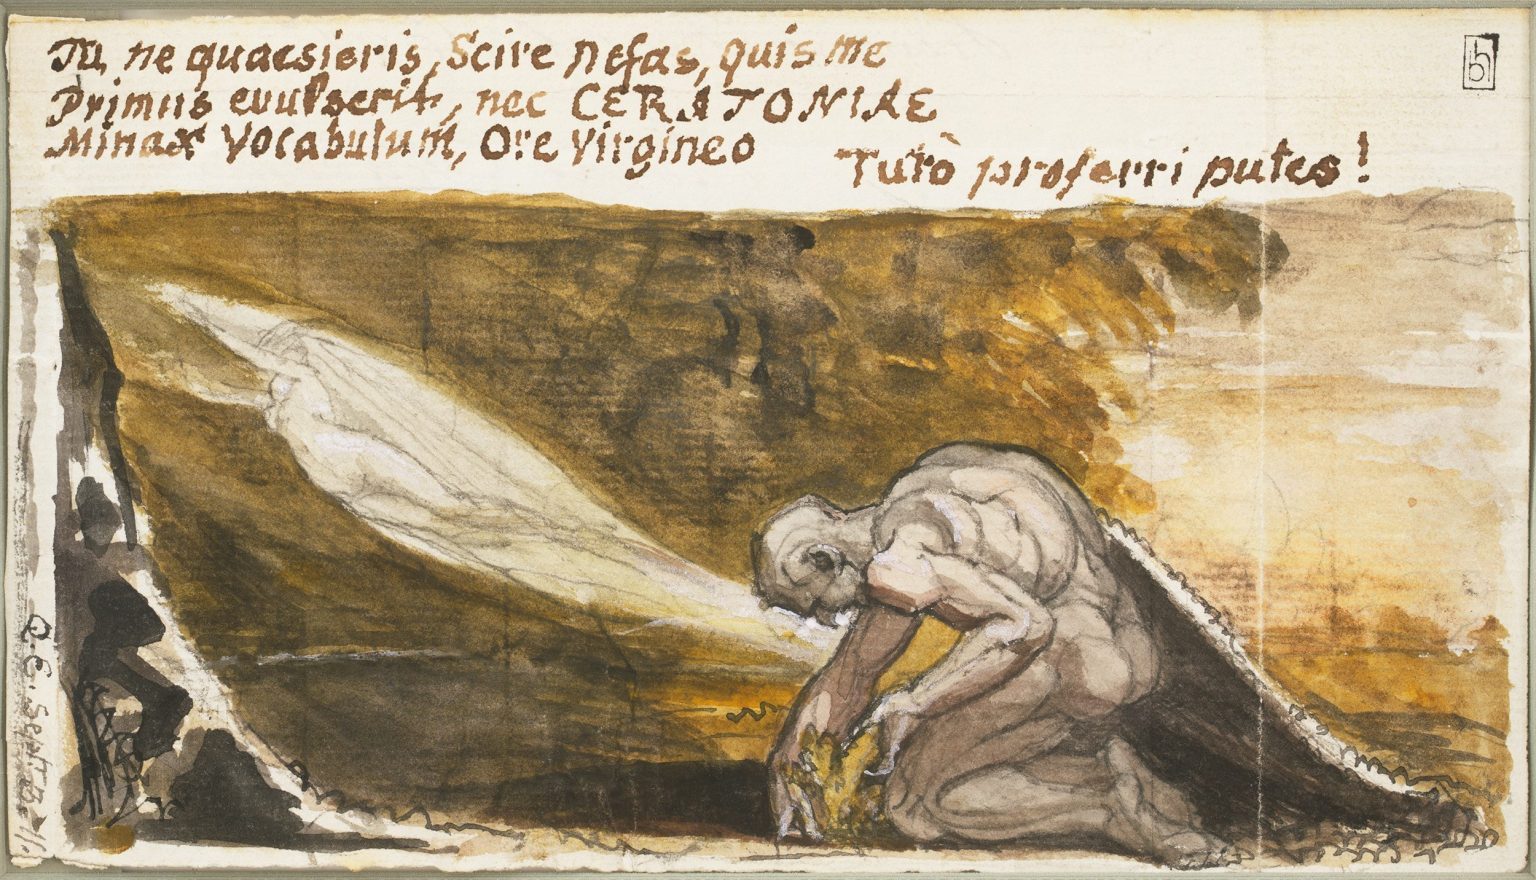 Tu ne quaesieris, Scire nefas, quis me
Primus evulserit, nec CERATONIAE
Minax Vocabulum, Ore Virgineo
Tutò proferri putes!
hb
Sept